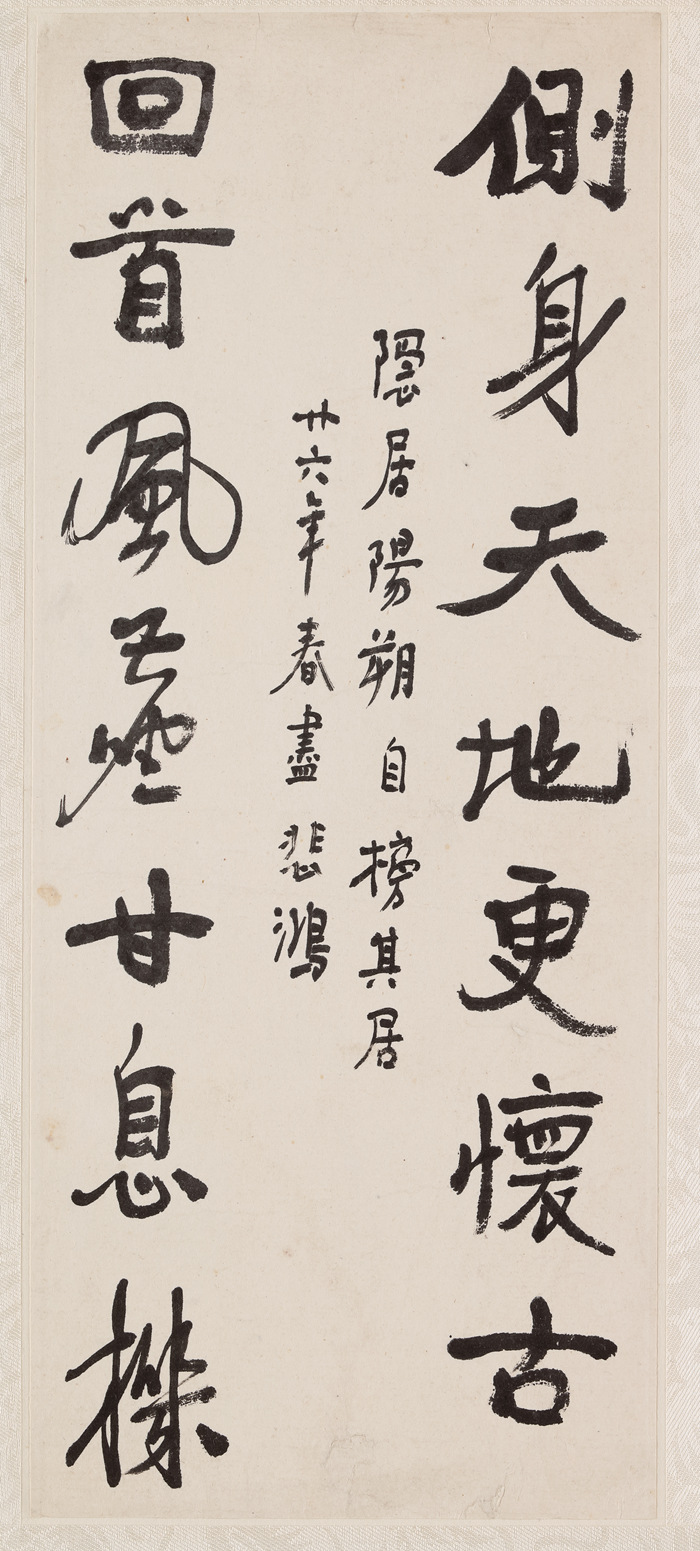 側身天地更懷古
隱居陽朔自榜其居
廿六年春盡 悲鴻
回首風塵甘息機